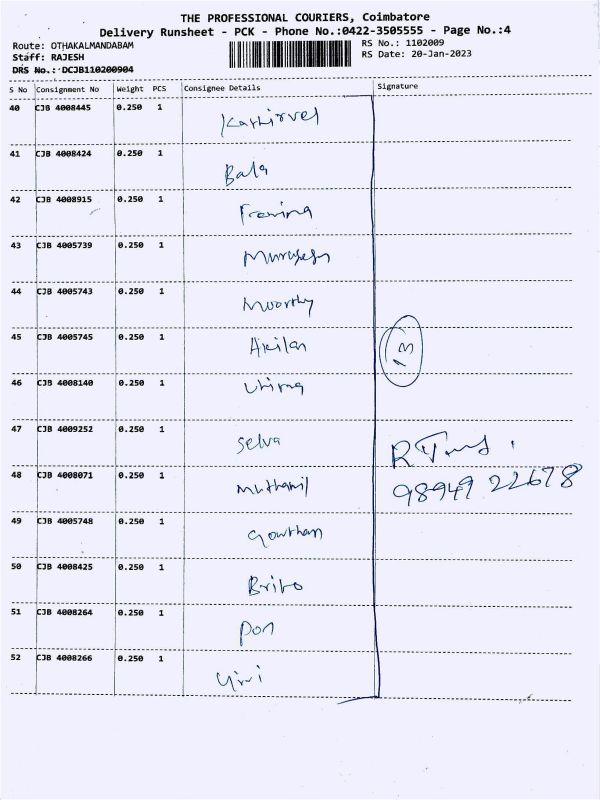 THE PROFESSIONAL COURIERS, Coimbatore
Delivery Runsheet - PCK - Phone No.:0422-3505555 - Page No.:4
Route: OTHAKALMANDABAM
RS No.: 1102009
Staff: RAJESH
RS Date: 20-Jan-2023
DRS No.: DCJB110200904
S No Consignment No Weight PCS Consignee Details Signature
40 CJB 4008445 0.250 1 Kathirvel
41 CJB 4008424 0.250 1 Bala
42 CJB 4008915 0.250 1
43 CJB 4005739 0.250 1 Murugesh
44 CJB 4005743 0.250 1 Moorthy
45 CJB 4005745 0.250 1 Akilan 13
46 CJB 4008140 0.250 1
47 CJB 4009252 0.250 1 Selva
48 CJB 4008071 0.250 1 Muthamil 98949 22678
49 CJB 4005748 0.250 1 Gowtham
50 CJB 4008425 0.250 1 Brito
51 CJB 4008264 0.250 1 Pon
52 CJB 4008266 0.250 1